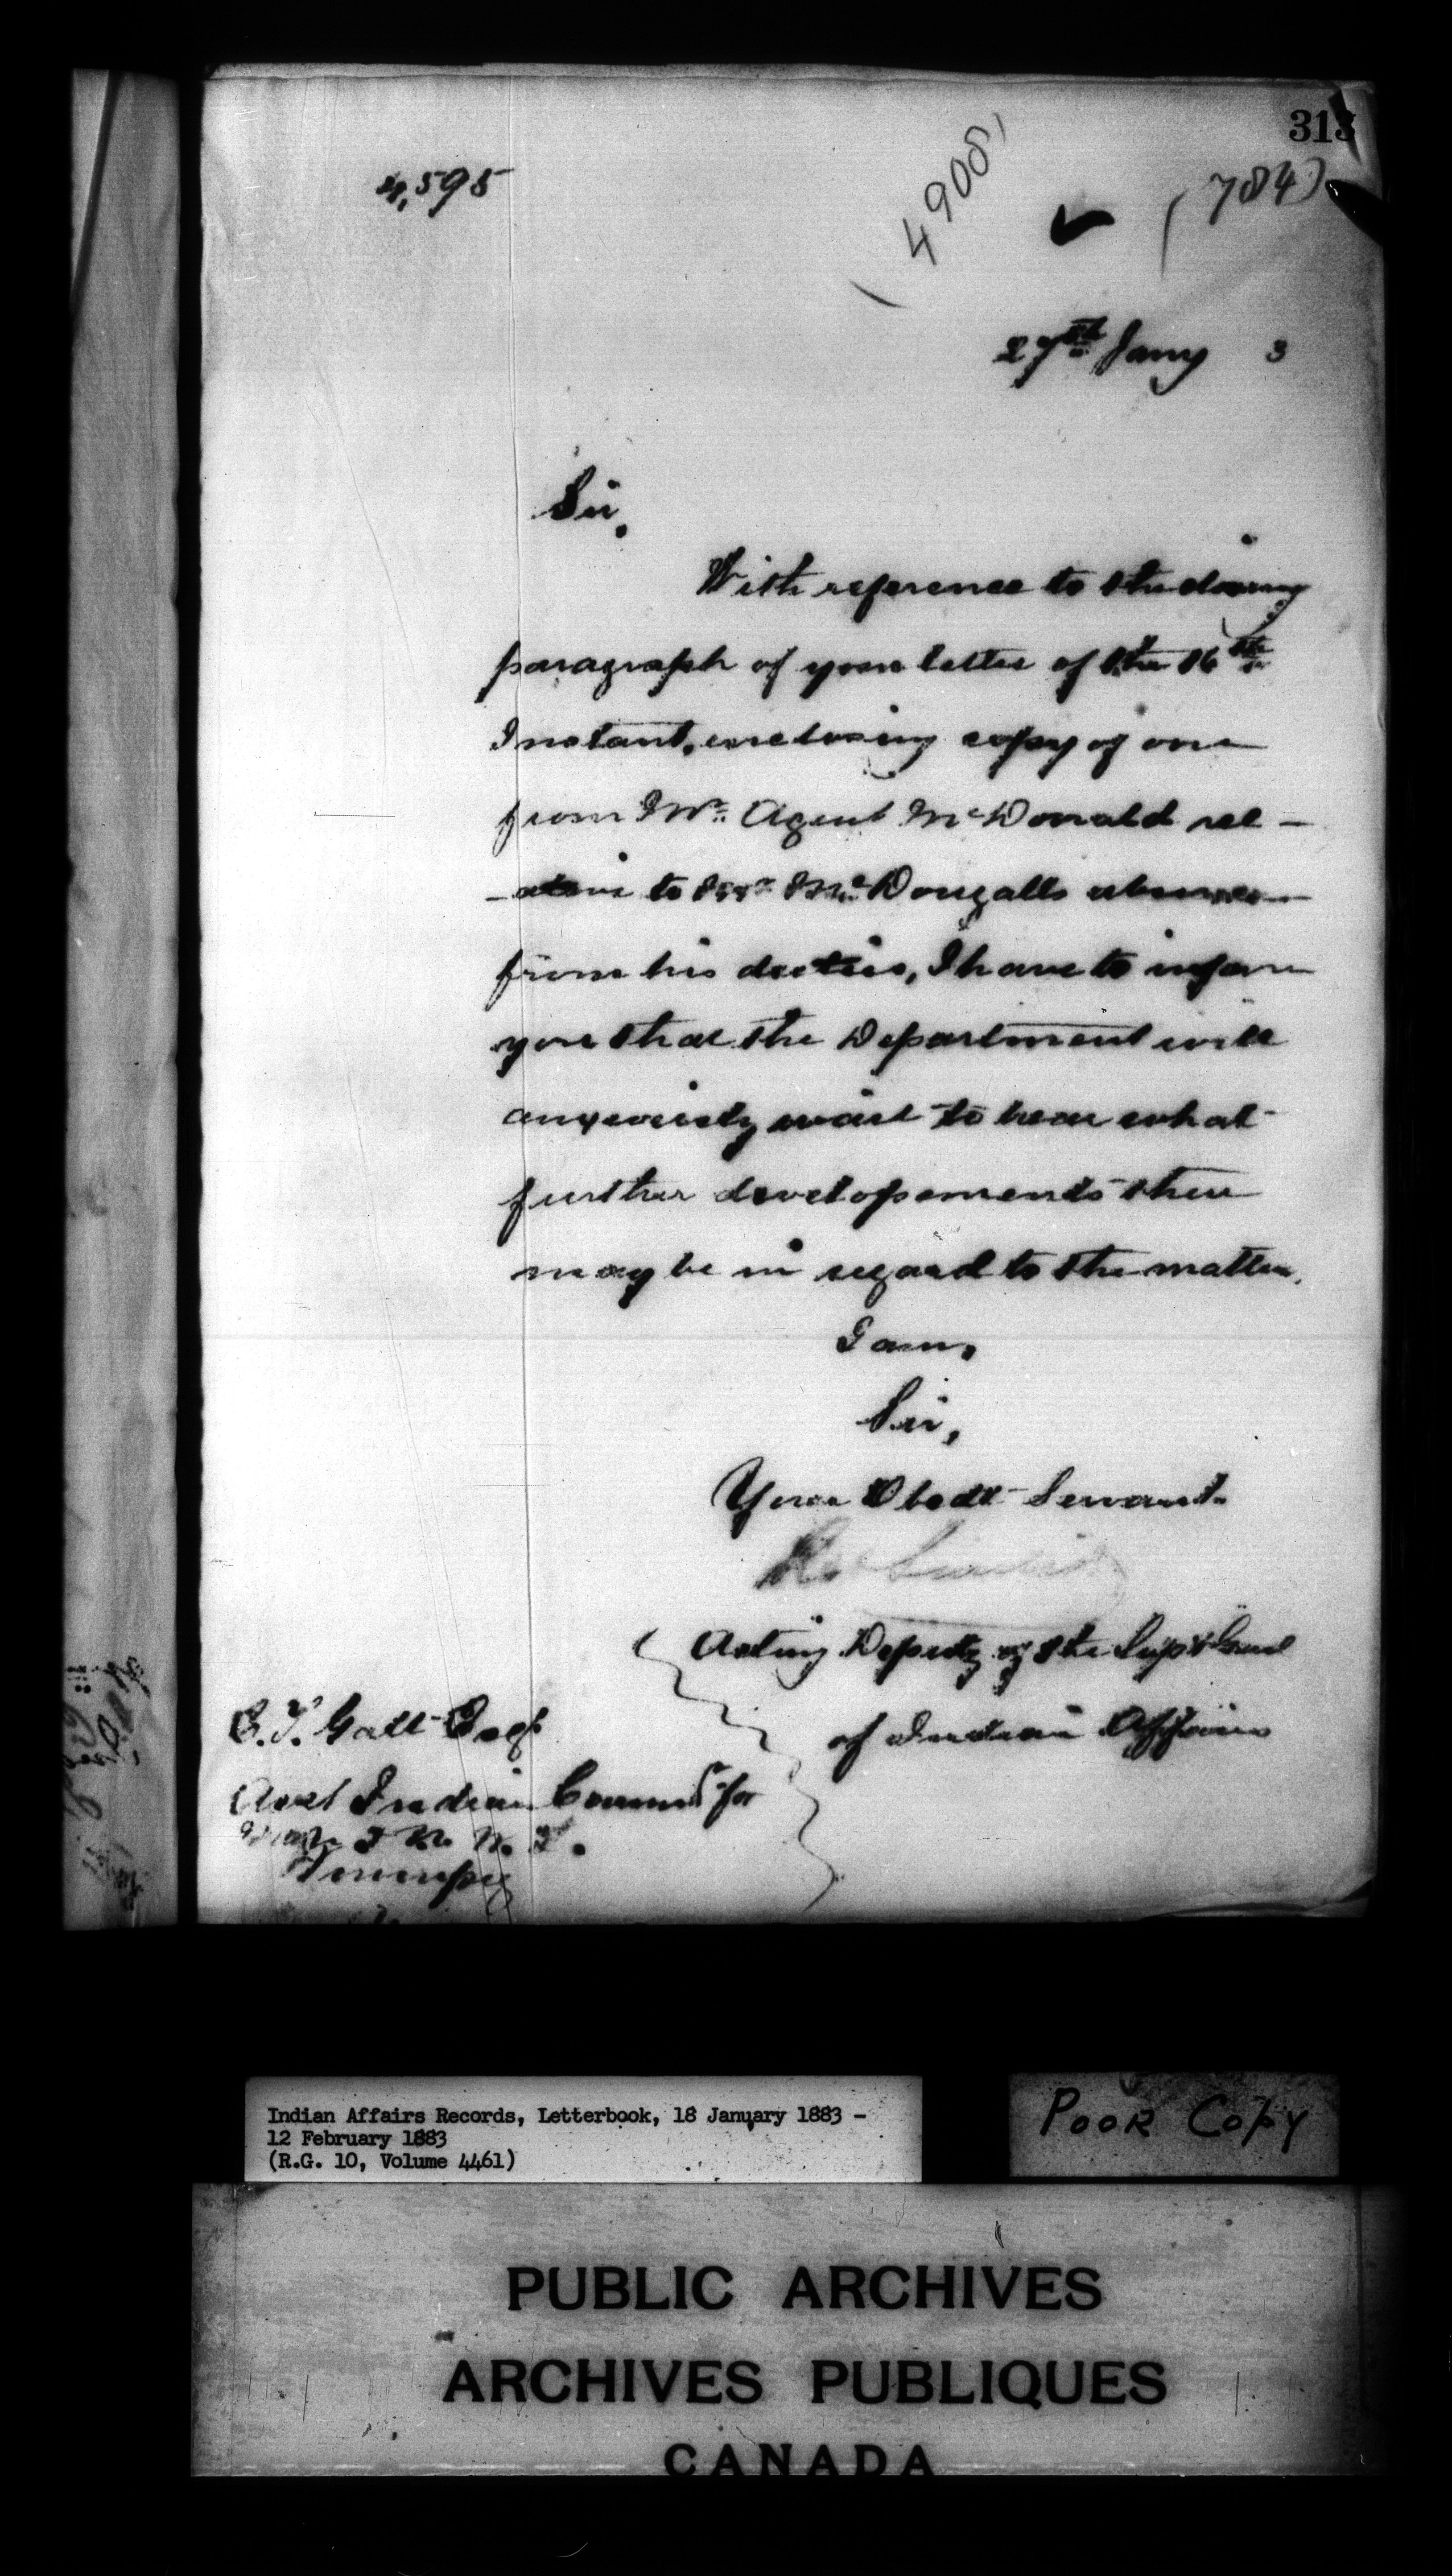 313
4,595
(4908)
(784)
27th Jany 3
Sir,
With reference to the closing
paragraph of your letter of the 16th
Instant, enclosing copy of one
from Mr. Agent McDonald rel-
-ative to Mr. McDougalls absence
from his duties, I have to inform
you that the Department will
anxiously wait to hear what
further developements there
may be in regard to the matter.
I am,
Sir,
Your Obedt Servant.
Acting Deputy of the Supt Genl
of Indian Affairs
E.T. Galt Esq
Asst Indian Commissr for
N. W. T.
Winnipeg
Indian Affairs Records, Letterbook, 18 January 1883 -
12 February 1883
(R.G. 10, Volume 4461)
POOR COPY
PUBLIC ARCHIVES
ARCHIVES PUBLIQUES
CANADA